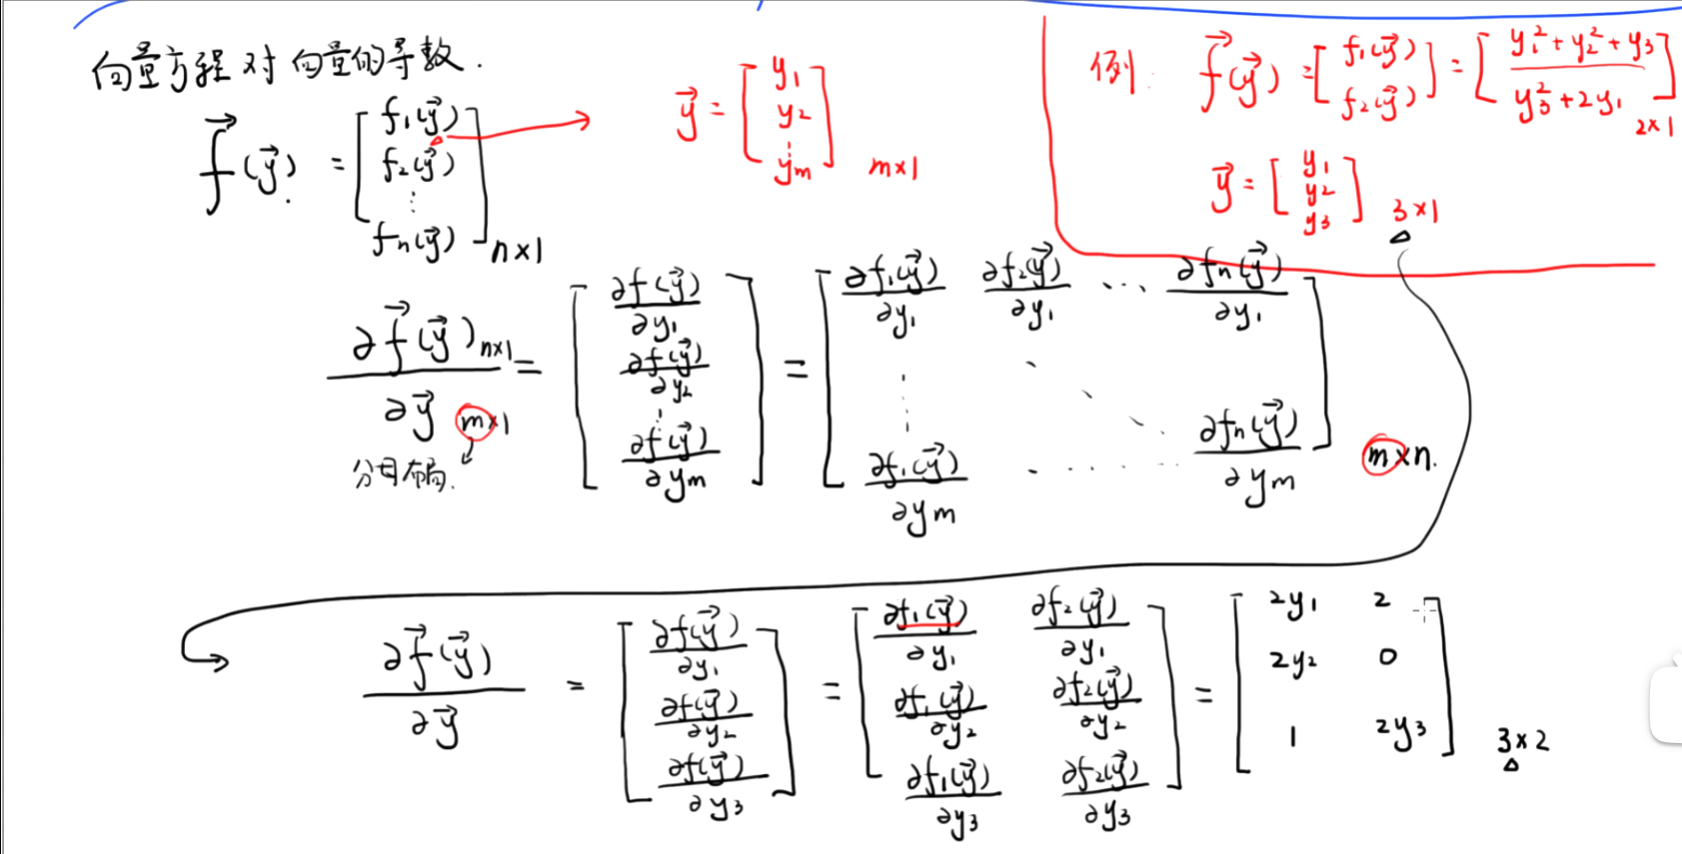 向量方程对向量的导数.
$\vec{f}(\vec{y}) = \begin{bmatrix} f_1(\vec{y}) \\ f_2(\vec{y}) \\ \vdots \\ f_n(\vec{y}) \end{bmatrix}_{n \times 1}$ → $\vec{y} = \begin{bmatrix} y_1 \\ y_2 \\ \vdots \\ y_m \end{bmatrix}_{m \times 1}$
例: $\vec{f}(\vec{y}) = \begin{bmatrix} f_1(\vec{y}) \\ f_2(\vec{y}) \end{bmatrix} = \begin{bmatrix} y_1^2 + y_2^2 + y_3 \\ y_3^2 + 2y_1 \end{bmatrix}_{2 \times 1}$
$\vec{y} = \begin{bmatrix} y_1 \\ y_2 \\ y_3 \end{bmatrix}_{3 \times 1}$
$\frac{\partial \vec{f}(\vec{y})_{n \times 1}}{\partial \vec{y}_{m \times 1}} = \begin{bmatrix} \frac{\partial f(\vec{y})}{\partial y_1} \\ \frac{\partial f(\vec{y})}{\partial y_2} \\ \vdots \\ \frac{\partial f(\vec{y})}{\partial y_m} \end{bmatrix} = \begin{bmatrix} \frac{\partial f_1(\vec{y})}{\partial y_1} & \frac{\partial f_2(\vec{y})}{\partial y_1} & \cdots & \frac{\partial f_n(\vec{y})}{\partial y_1} \\ \vdots & & \ddots & \\ \frac{\partial f_1(\vec{y})}{\partial y_m} & \cdots & \cdots & \frac{\partial f_n(\vec{y})}{\partial y_m} \end{bmatrix}_{m \times n.}$
分母布局.
$\frac{\partial \vec{f}(\vec{y})}{\partial \vec{y}} = \begin{bmatrix} \frac{\partial f(\vec{y})}{\partial y_1} \\ \frac{\partial f(\vec{y})}{\partial y_2} \\ \frac{\partial f(\vec{y})}{\partial y_3} \end{bmatrix} = \begin{bmatrix} \frac{\partial f_1(\vec{y})}{\partial y_1} & \frac{\partial f_2(\vec{y})}{\partial y_1} \\ \frac{\partial f_1(\vec{y})}{\partial y_2} & \frac{\partial f_2(\vec{y})}{\partial y_2} \\ \frac{\partial f_1(\vec{y})}{\partial y_3} & \frac{\partial f_2(\vec{y})}{\partial y_3} \end{bmatrix} = \begin{bmatrix} 2y_1 & 2 \\ 2y_2 & 0 \\ 1 & 2y_3 \end{bmatrix}_{3 \times 2}$